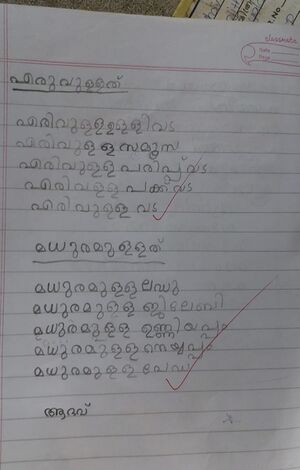 classmate
Date
Page
എരുവുള്ളത്
എരിവുള്ള ഉള്ളിവട
എരിവുള്ള സമൂസ
എരിവുള്ള പരിപ്പ് വട
എരിവള്ള പക്ക് വട
എരിവുള്ള വട
മധുരമുള്ളത്
മധുരമുള്ള ലഡു
മധുരമുള്ള ജിലേബി
മധുരമുള്ള ഉണ്ണിയപ്പം
മധുരമുള്ള നെയ്യപ്പം
മധുരമുള്ള പേഡ
ആദവ്